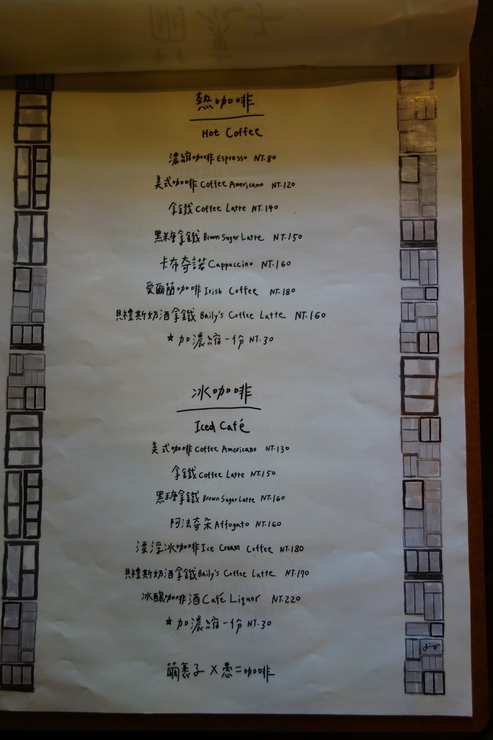 熱咖啡
Hot Coffee
濃縮咖啡 Espresso NT.80
美式咖啡 Coffee Americano NT.120
拿鐵 Coffee Latte NT.140
黑糖拿鐵 Brown Sugar Latte NT.150
卡布奇諾 Cappuccino NT.160
愛爾蘭咖啡 Irish Coffee NT.180
貝禮斯奶酒拿鐵 Baily's Coffee Latte NT.160
★加濃縮一份 NT.30
冰咖啡
Iced Café
美式咖啡 Coffee Americano NT.130
拿鐵 Coffee Latte NT.150
黑糖拿鐵 Brown Sugar Latte NT.160
阿法奇朵 Affogato NT.160
漂浮冰咖啡 Ice Cream Coffee NT.180
貝禮斯奶酒拿鐵 Baily's Coffee Latte NT.170
冰釀咖啡酒 Café Liquor NT.220
★加濃縮一份 NT.30
繭裹子 X 愚二咖啡